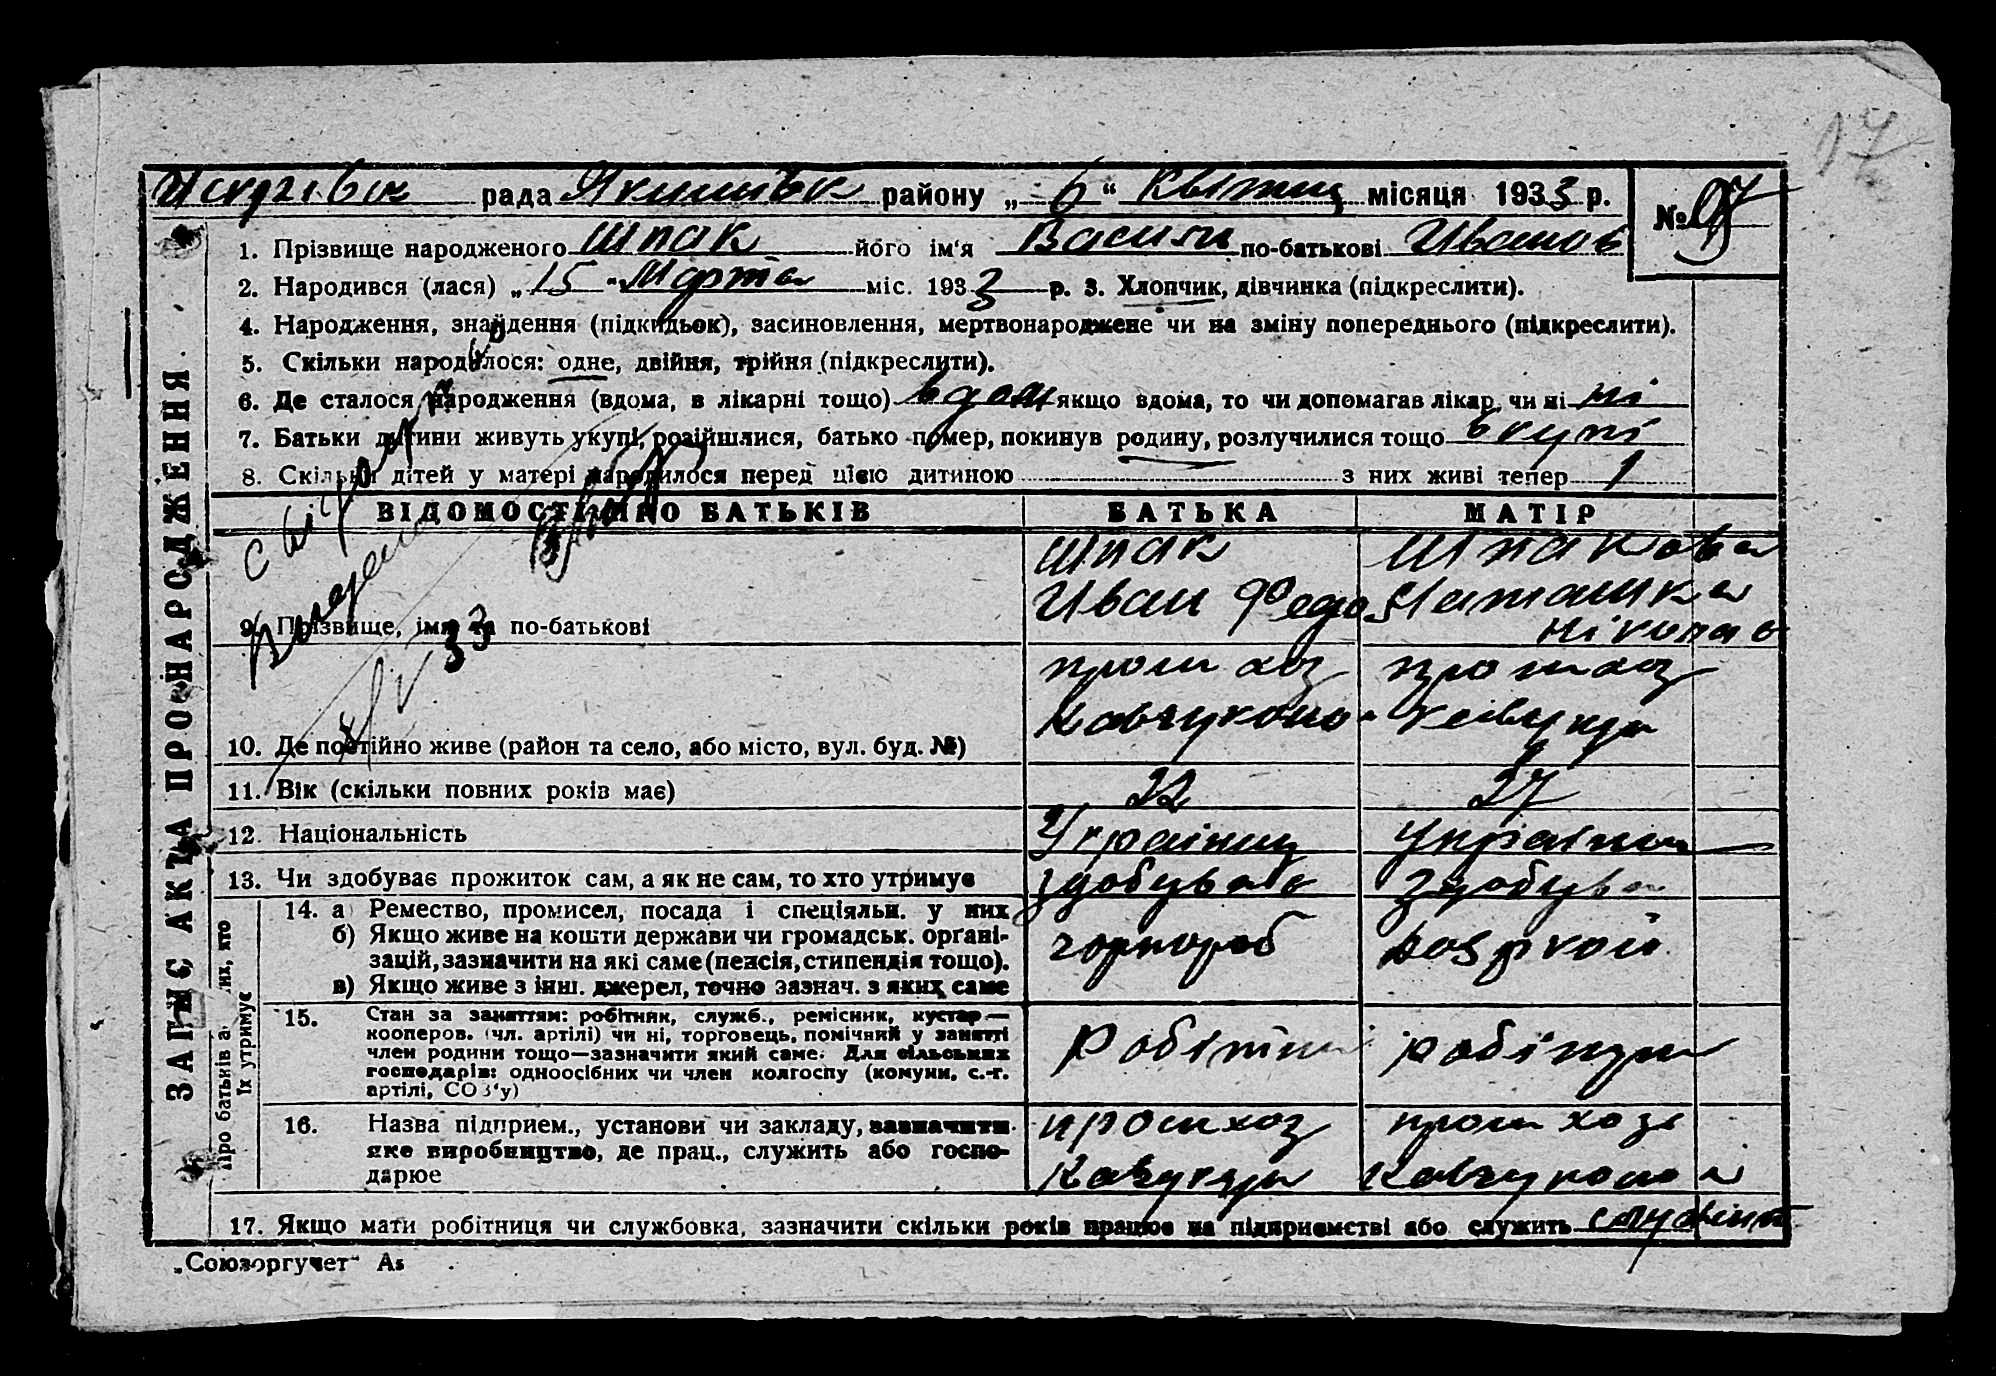 17
рада Якимівск району „ 6 “ Квітня місяця 1933 р.
№ 97
1. Прізвище народженого Шпак його ім'я Васили по-батькові Иванов
2. Народився (лася) „ 15 " Марта міс. 1933 р. 3. Хлопчик, дівчинка (підкреслити).
4. Народження, знайдення (підкидьок), засиновлення, мертвонароджене чи на зміну попереднього (підкреслити).
5. Скільки народилося: одне, двійня, трійня (підкреслити).
6. Де сталося народження (вдома, в лікарні тощо) вдома якщо вдома, то чи допомагав лікар, чи ні ні
7. Батьки дитини живуть укупі, розійшлися, батько помер, покинув родину, розлучилися тощо вкупі
8. Скільки дітей у матері народилося перед цією дитиною з них живі тепер 1
ВІДОМОСТІ ПРО БАТЬКІВ БАТЬКА МАТІР
Шпак Шпакова
Иван Федо Наташка
9. Прізвище, імя та по-батькові Николав
33
10. Де постійно живе (район та село, або місто, вул. буд. №)
11. Вік (скільки повних років має) 22 27
12. Національність Українц Українка
13. Чи здобуває прожиток сам, а як не сам, то хто утримує здобуває здобува
14. а Ремество, промисел, посада і спеціяльн. у них
б) Якщо живе на кошти держави чи громадськ. орґані-
зацій, зазначити на які саме (пенсія, стипендія тощо). чорнороб
в) Якщо живе з інш. джерел, точно зазнач. з яких саме
15. Стан за заняттям: робітник, служб., ремісник, кустар—
кооперов. (чл. артілі) чи ні, торговець, помічний у занятті
член родини тощо—зазначити який саме. Для сільських
господарів: одноосібних чи член колгоспу (комуни, с.-г.
артілі, СОЗ'у)
робітни робіндя
16. Назва підприєм., установи чи закладу, зазначити
яке виробництво, де прац., служить або госпо-
дарює
промхоз промхозе
17. Якщо мати робітниця чи службовка, зазначити скільки років працює на підприємстві або служить
ЗАПИС АКТА ПРО НАРОДЖЕННЯ
Про батьків а них, хто
їх утримує
„Союзоргучет“ А5